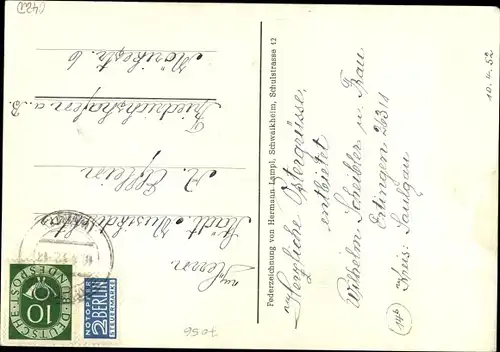 10.4.52
Herzliche Ostergrüsse,
entbietet
Wilhelm Scheibler u. Frau
Ertingen 263 11
Kreis: Saulgau
14b
Federzeichnung von Hermann Lampl, Schwaikheim, Schulstrasse 12
Herrn
Städt. Musikdirektor
A.
Friedrichshafen a. B.
Mörikestr. 6
DEUTSCHE BUNDESPOST
10
NOTOPFER
2 BERLIN
STEUERMARKE
7056